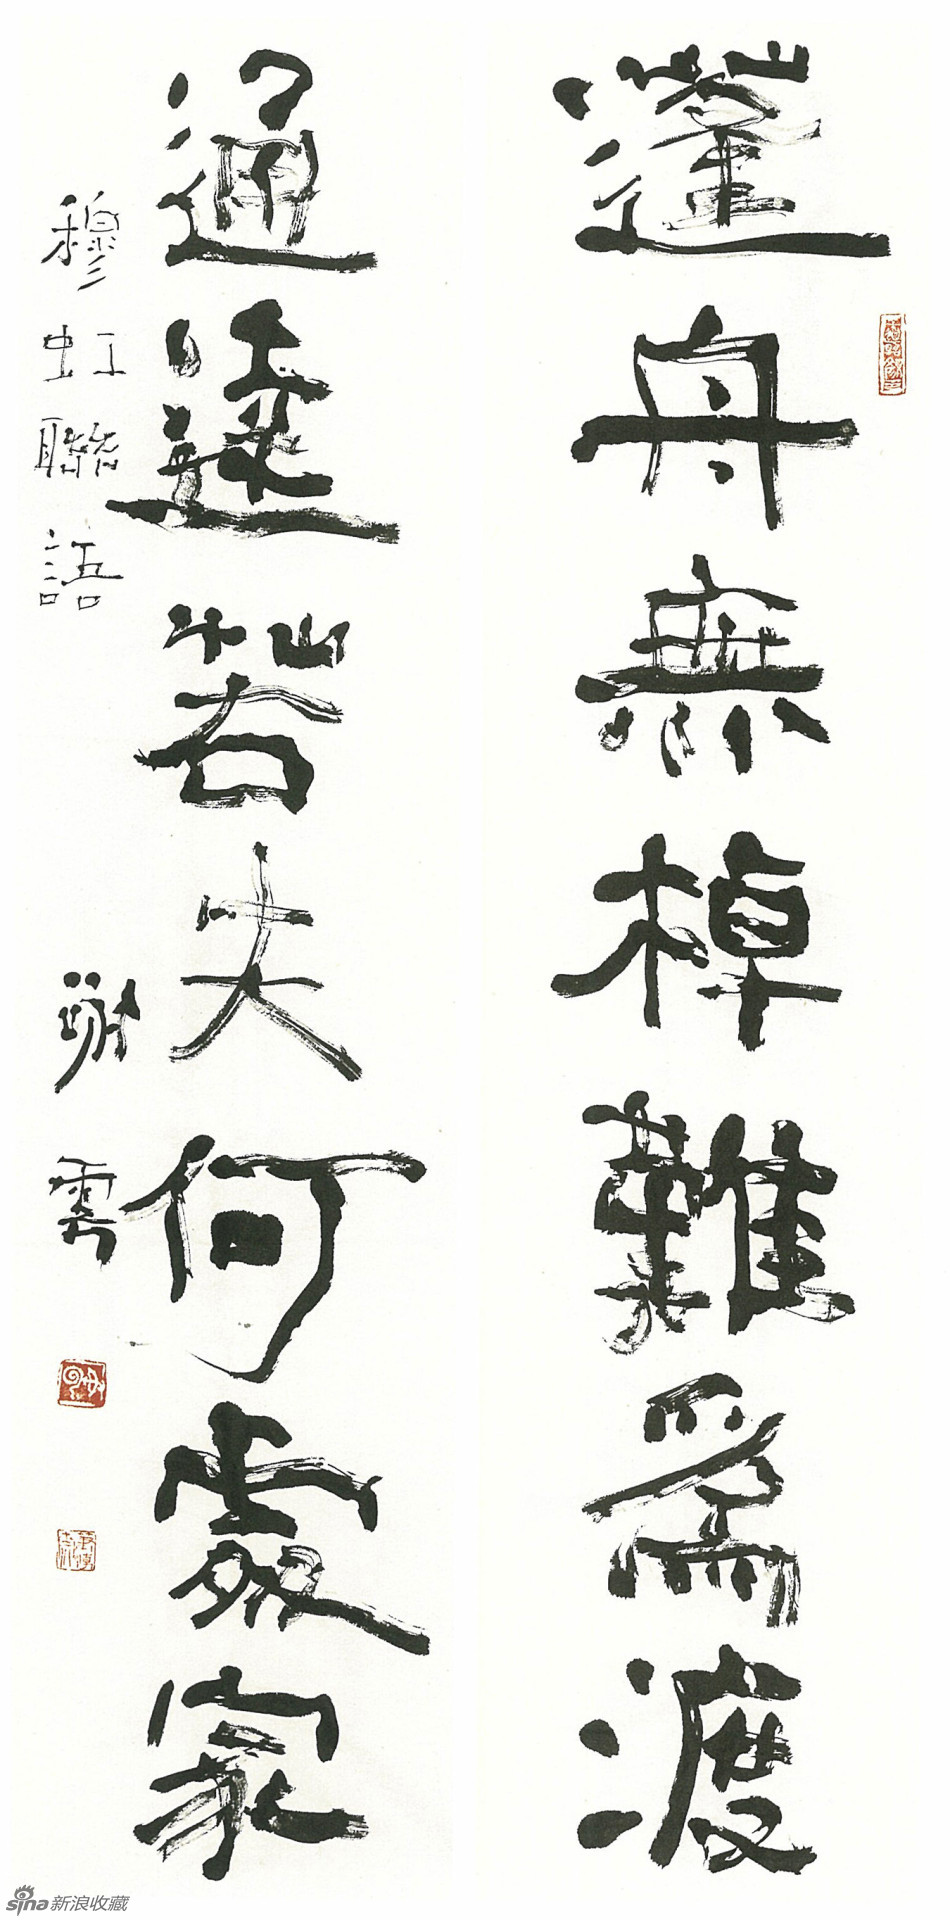 蓬舟無棹難爲渡
通達若失何處家
穆虹聯語 謝雲
sina新浪收藏